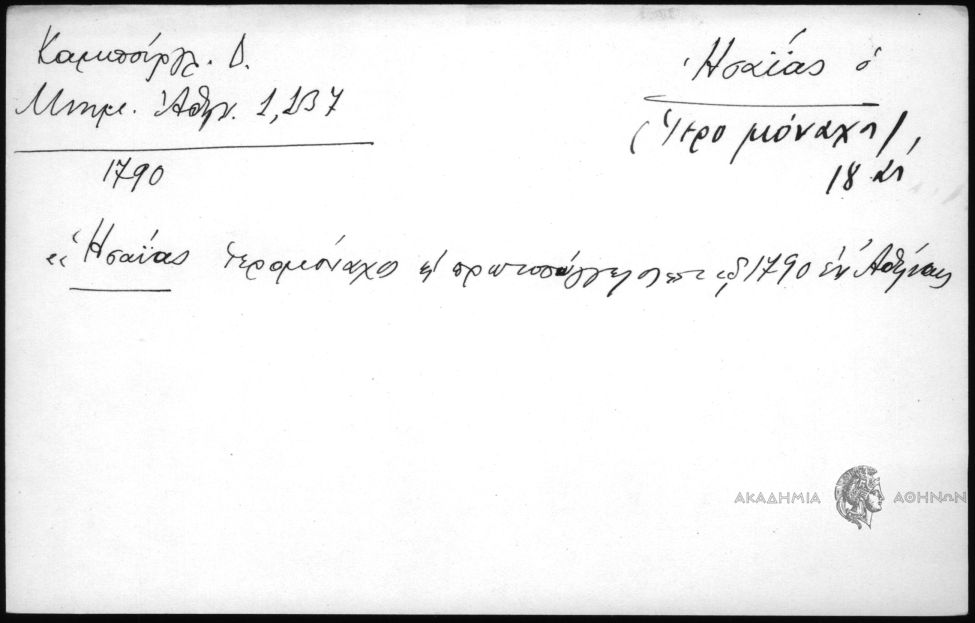 Καμπούρογλ. Δ.
Μνημ. Ἀθην. 1, 237
1790
Ἡσαΐας ὁ
(Ἱερομόναχος),
18 αἰ,
« Ἡσαΐας ἱερομόναχος 1790 ἐν Ἀθήναις
ΑΚΑΔΗΜΙΑ ΑΘΗΝΩΝ